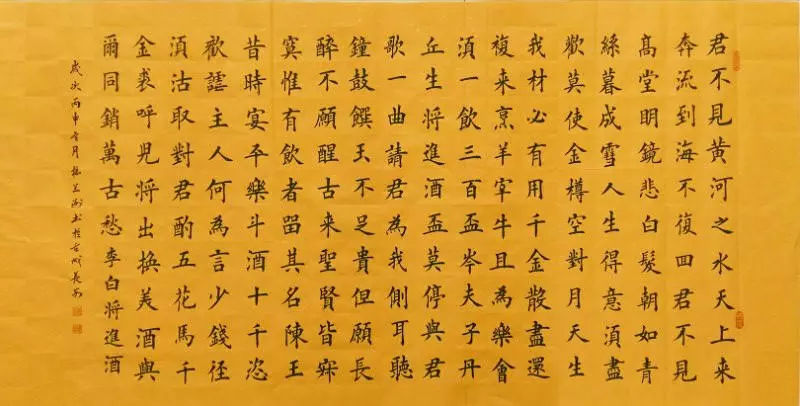 君不見黄河之水天上来
奔流到海不復回君不見
高堂明鏡悲白髮朝如青
絲暮成雪人生得意須盡
歡莫使金樽空對月天生
我材必有用千金散盡還
復来烹羊宰牛且為樂會
須一飲三百盃岑夫子丹
丘生将進酒盃莫停與君
歌一曲請君為我側耳聽
鐘鼓饌玉不足貴但願長
醉不願醒古来聖賢皆寂
寞惟有飲者留其名陳王
昔時宴平樂斗酒十千恣
歡謔主人何為言少錢徑
須沽取對君酌五花馬千
金裘呼児将出換美酒與
爾同銷萬古愁李白将進酒
歲次丙申月书於古城長安